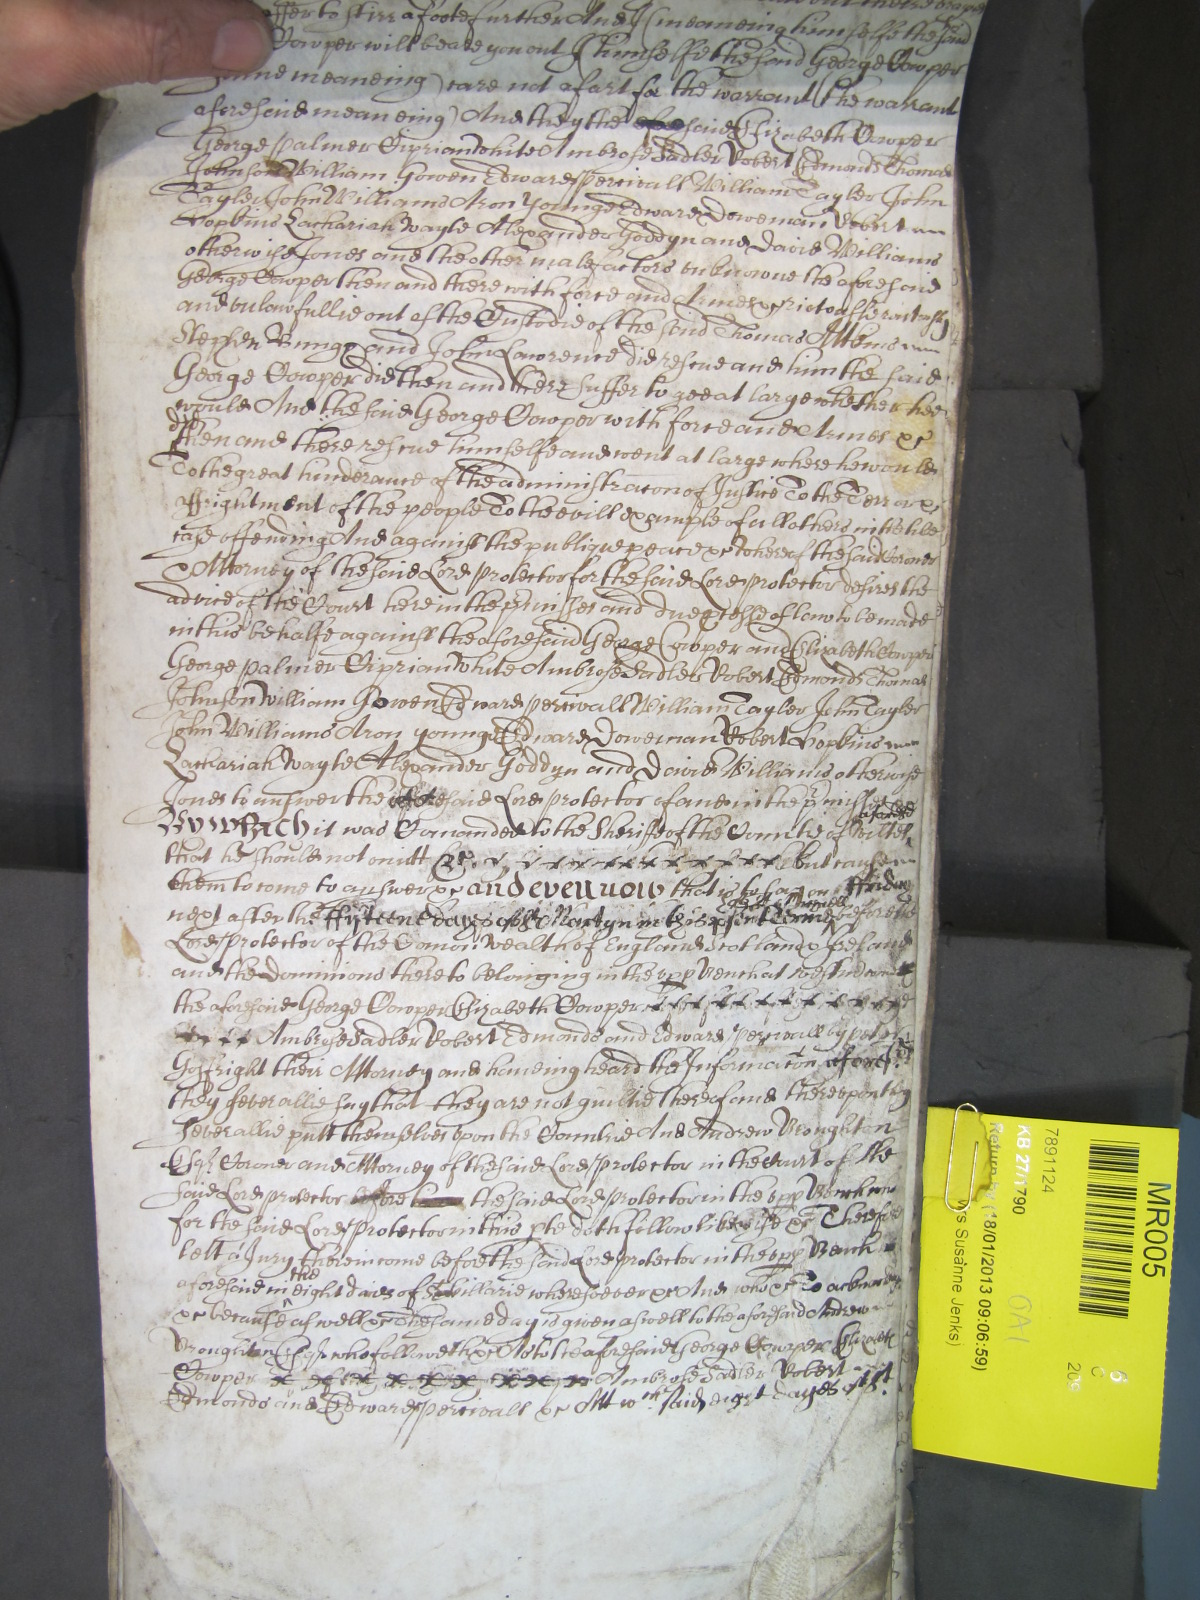 offer to stirr a foote further And I (meaneing himselfe the said
Cowper will beare you out I himselfe the said George Cowper
meaneing) care not a fart for the warrant (the warrant
aforesaid meaneing) And they the said Elizabeth Cowper
George Palmer Ciprian White Ambrose Sadler Robert Edmonds Thomas
Johnson William Gowen Edward Percivall William Tayler John
Tayler John Williams Aron Younge Edward Doweman Robert
Hopkins Zachariah Wayte Alexander Goddyn and David Williams
otherwise Jones and the other malefactors unknowne the aforesaid
George Cowper then and there with force and Armes &c riotously routously
and unlawfullie out of the Custodie of the said Thomas Attkins
Stephen Bungy and John Lawrence did rescue and him the said
George Cowper did then and there suffer to goe at large whether hee
would And the said George Cowper with force and Armes &c
then and there rescue himselfe and went at large where he would
To the great hinderance of the administracon of Justice To the Terror &
affrightment of the people To the evill example of all others in the like
case offending And against the publique peace &c Whereof the said Coroner
& Attorney of the said Lord Protector for the said Lord Protector desires the
advice of the Court here in the p'misses and due p'cesse of law to be made
in this behalfe against the aforesaid George Cowper and Elizabeth Cowper
George Palmer Ciprian White Ambrose Sadler Robert Edmonds Thomas
Johnson William Gowen Edward Percivall William Tayler John Tayler
John Williams Aron Younge Edward Doweman Robert Hopkins
Zachariah Wayte Alexander Goddyn and David Williams otherwise
Jones to answer the said Lord Protector of and in the p'misses
Whereas
By which it was Comanded to the Sheriffe of the Countie of Wiltes
that he should not omitt &c but cause
them to come to answer &c and even now that is to say on ffriday
next after the ffifteene dayes of St Martyn in this p'sent Terme before the
Lord Protector of the Comon Wealth of England Scotland & Ireland
and the dominions thereto belonging in the upp Bench at Westminster
the aforesaid George Cowper Elizabeth Cowper
Ambrose Sadler Robert Edmonds and Edward Percivall by Peter
Gosfright their Attorney and haveing heard the Informacon aforesd
they severallie say that they are not guiltie thereof and thereupon they
severallie putt themselves upon the Countrie And Andrew Broughton
Esqr Coroner and Attorney of the said Lord Protector in the Court of the
said Lord Protector before the said Lord Protector in the upp Bench
for the said Lord Protector in this p'te doth follow likewise &c Therefore
lett a Jury therein come before the said Lord Protector in the upp Bench
the
aforesaid in eight daies of St Hillarie wheresoever &c And who &c To acknowledge
&c because aswell &c The same day is given aswell to the aforesaid Andrew
Broughton Esqr who followeth &c As to the aforesaid George Cowper Elizabeth
Cowper Ambrose Sadler Robert
Edmonds and Edward Percivall &c Att wch said eight dayes of St
MR005
7891124
KB 27/1790
Return by (18/01/2013 09:06:59)
Susanne Jenks)
OA1
6
C